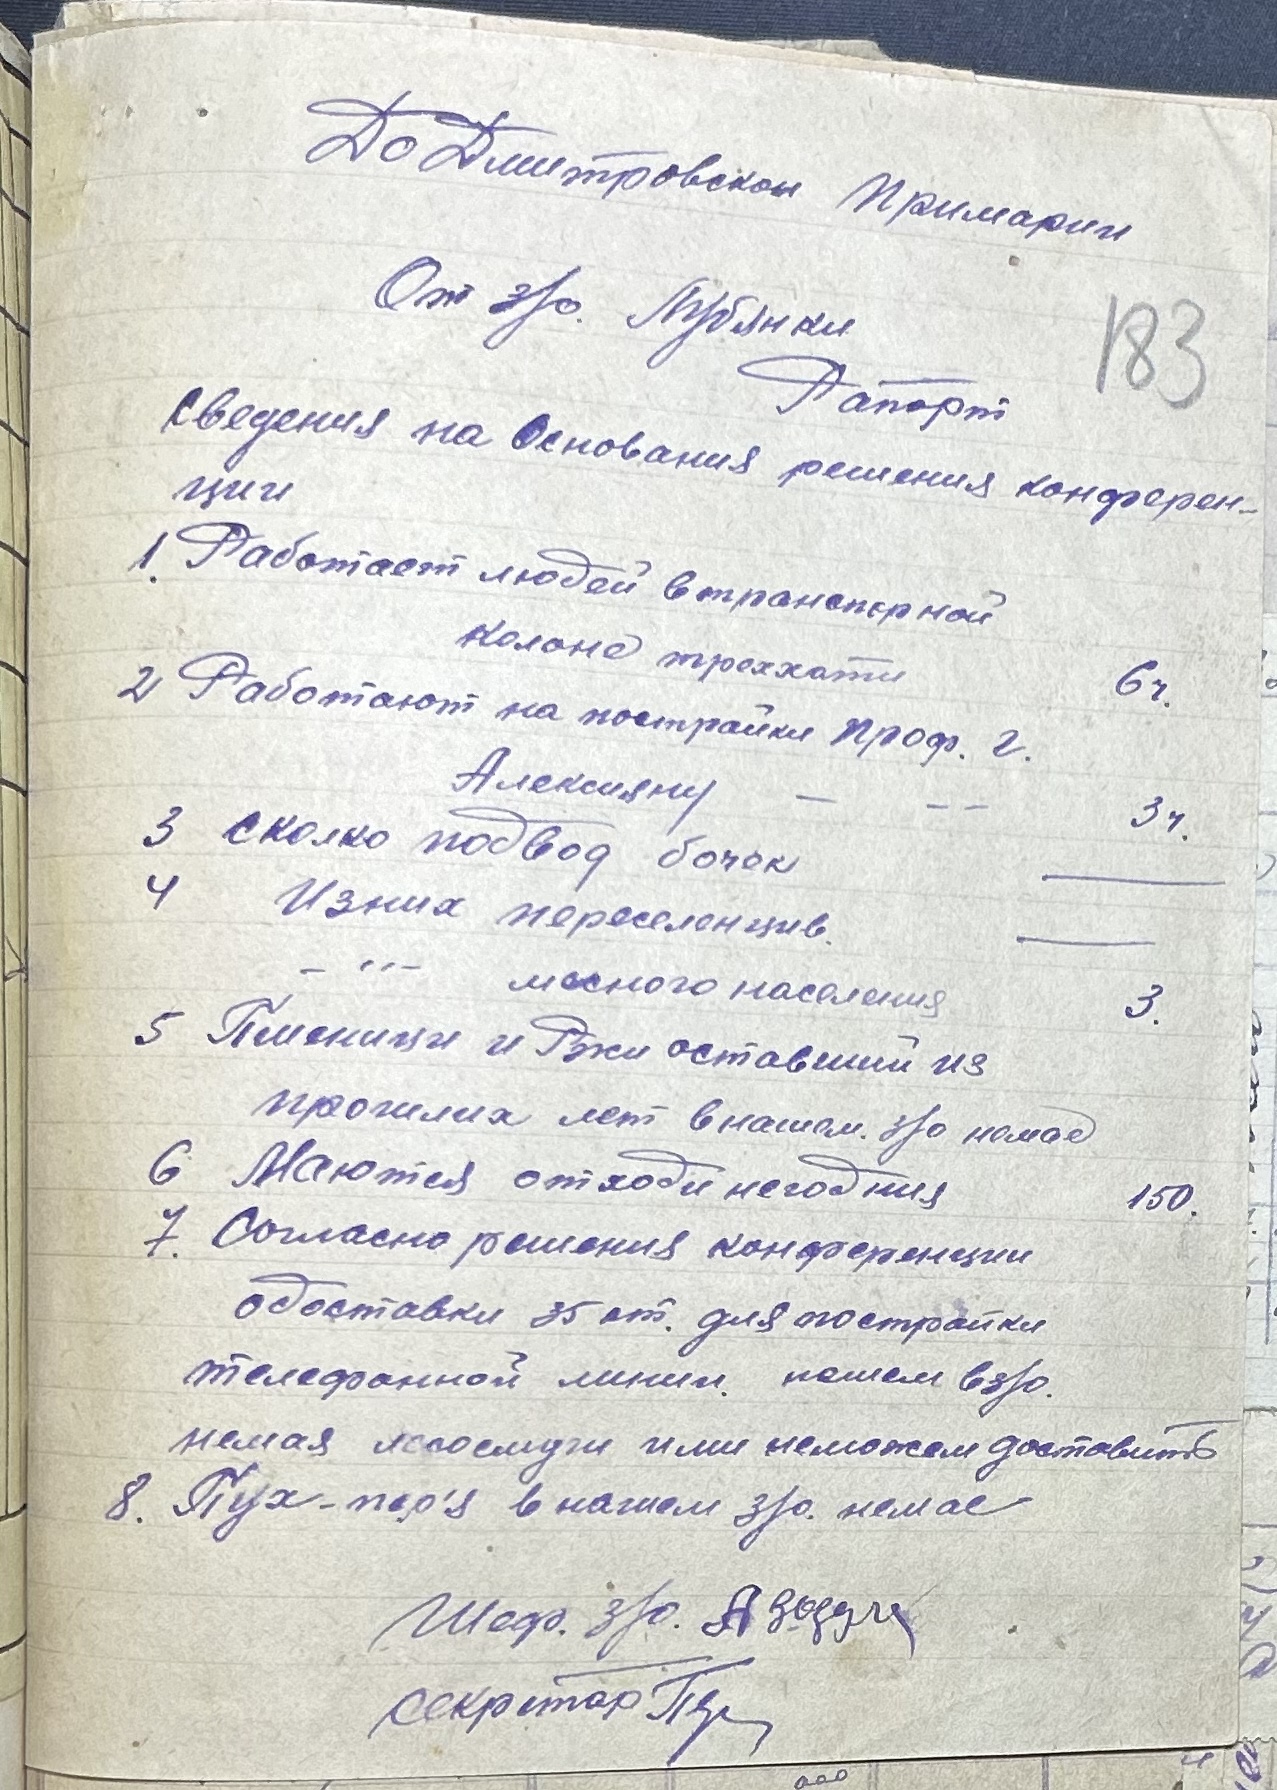 До Дмитровскои Примарии
От з/о. Лубянки
183
Рапорт
Сведения на Основания решения конферен-
ции
1. Работает людей в транспрной
колоне треххати 6ч.
2 Работают на пострайки Проф. г.
Алексияну — - - 3ч.
3 Сколко подвод бочек —
4 Изних переселенцив. —
- ''- месного населения 3.
5 Пшеници и Ржи оставший из
прошлих лет в нашем. з/о немае
6 Маются отходи негодния 150.
7. Согласно решения конференции
одоставки 35 шт. для пострайки
телефонной линии. нашем в з/о.
немая или неможем доставить
8. Пух-пер'я в нашем з/о. немае
Шеф. з/о.
Секретар